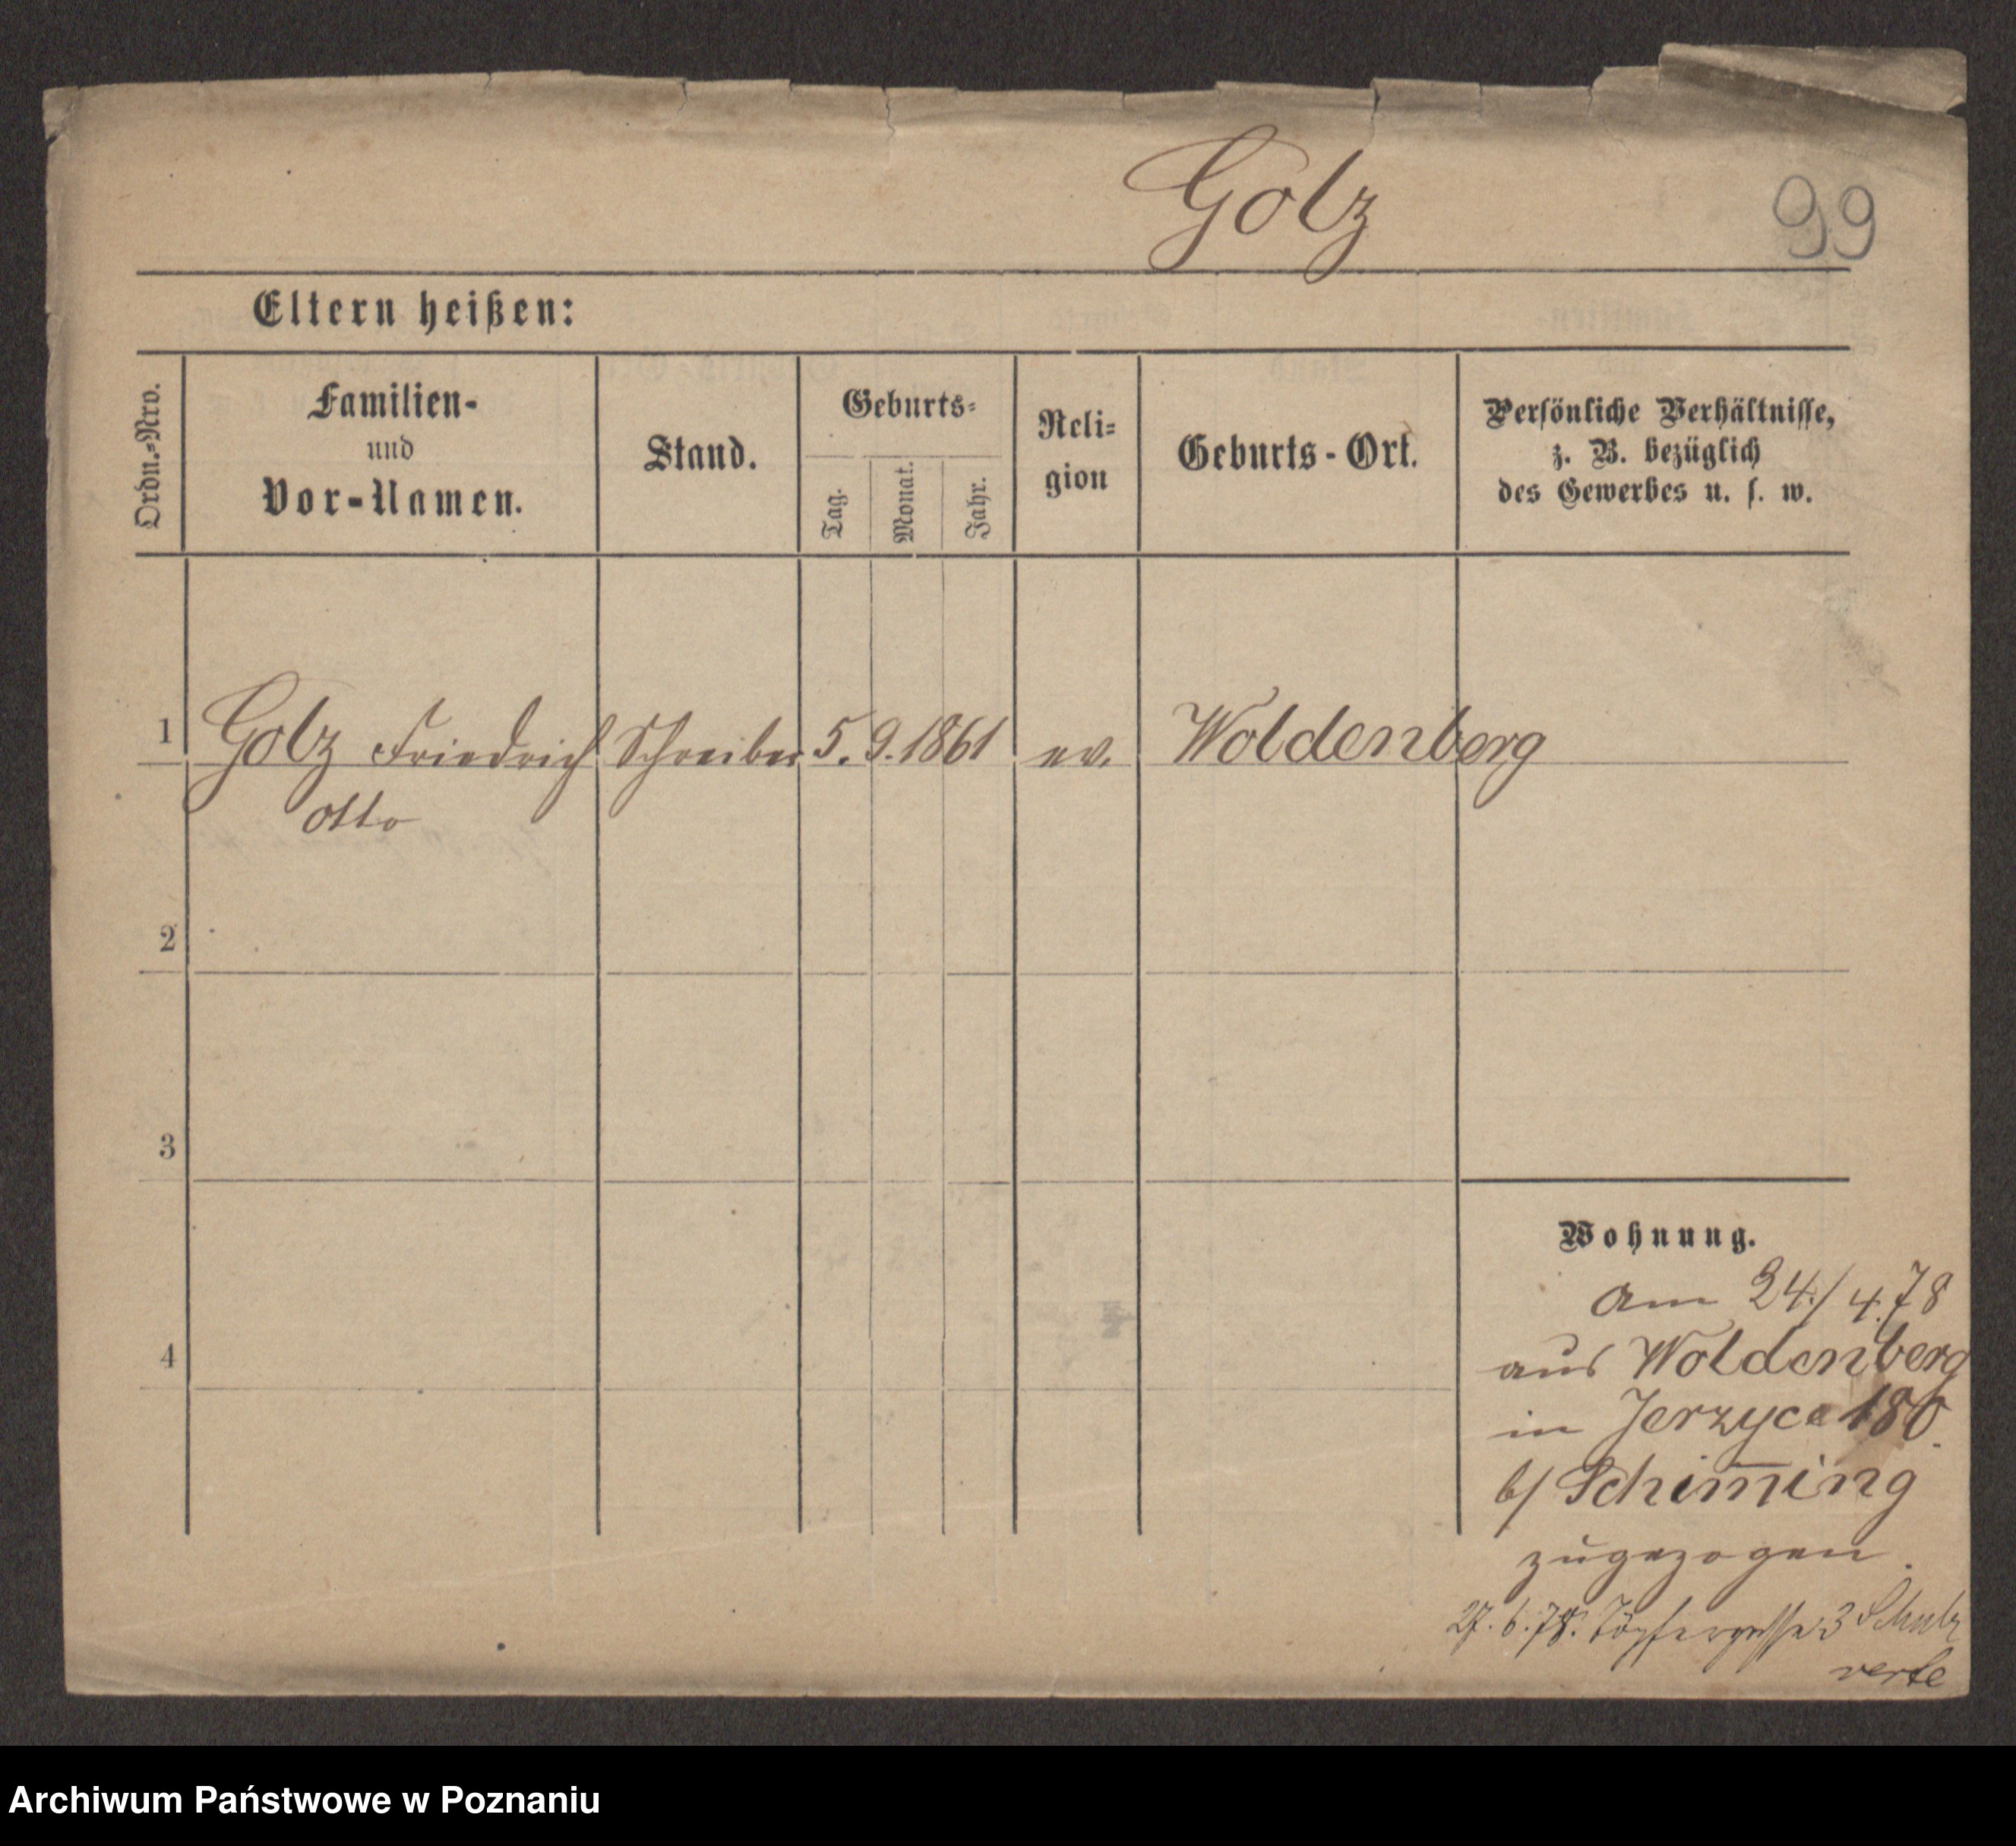 Golz
99
Eltern heißen:
Ordn.-Nro.
Familien-
und
Vor-Namen.
Stand.
Geburts-
Tag.
Monat.
Jahr.
Reli-
gion
Geburts-Ort.
Persönliche Verhältnisse,
z. B. bezüglich
des Gewerbes u. s. w.
1 Golz Friedrich Schreiber 5. 9. 1861 ev. Woldenberg
Otto
2
3
4
Wohnung.
am 24./4.78
aus Woldenberg
in Jerzyce 186.
b/ Schim̅ing
zugezogen.
27.6.78. Töpfergasse 3 Schulz
verte
Archiwum Państwowe w Poznaniu